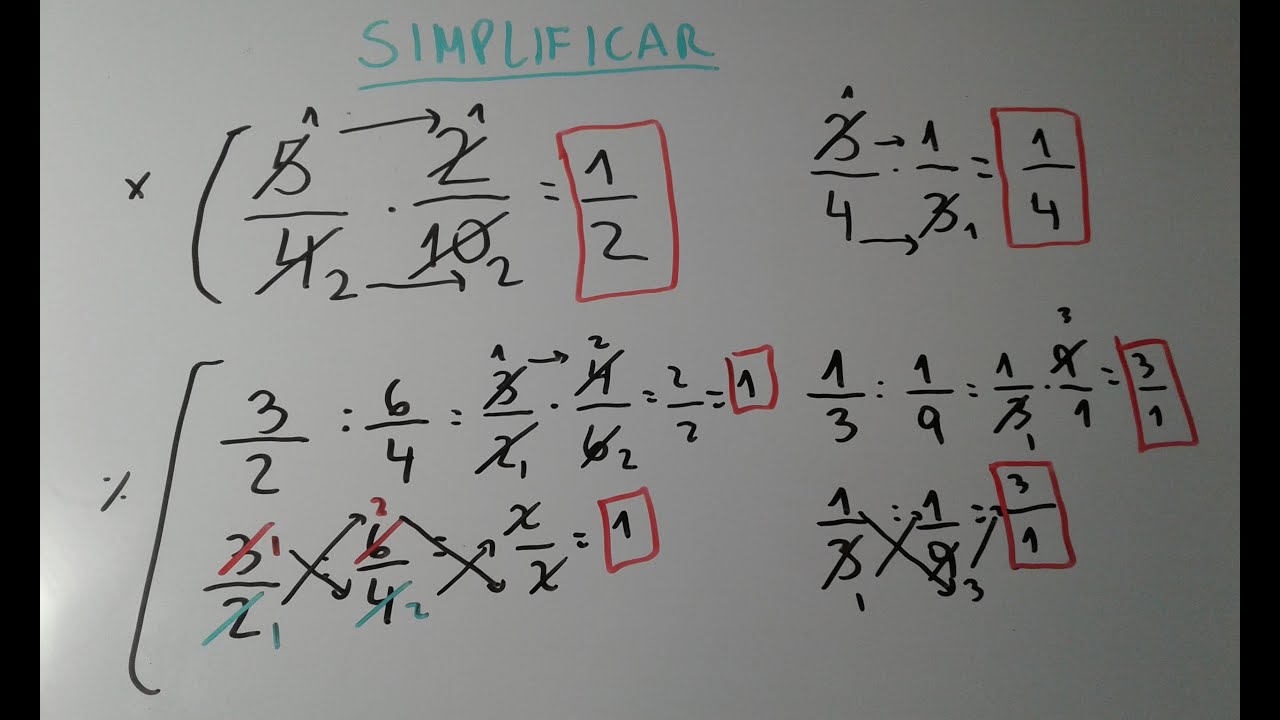 SIMPLIFICAR
x ( 5/4 · 2/10 = 1/2
1 1 2 2
3/4 · 1/3 = 1/4
1 1
÷ [ 3/2 : 6/4 = 3/2 · 4/6 = 2/2 = 1
1 2 1 2
1/3 : 1/9 = 1/3 · 9/1 = 3/1
3 1
3/2 : 6/4 = 2/2 = 1
1 2 1 2
1/3 : 1/9 = 3/1
1 3